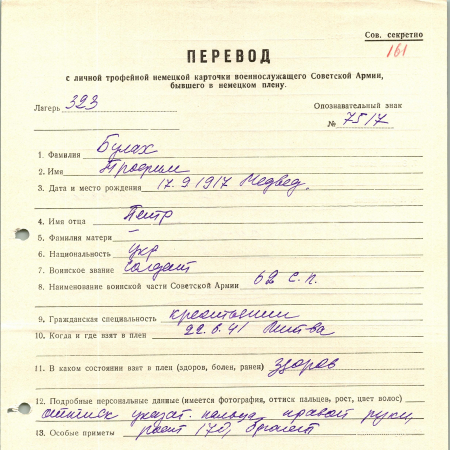 Сов. секретно
161
ПЕРЕВОД
с личной трофейной немецкой карточки военнослужащего Советской Армии,
бывшего в немецком плену.
Лагерь 323
Опознавательный знак
№ 7517
1. Фамилия Булах
2. Имя Трофим
3. Дата и место рождения 17.9.1917 Медвед.
4. Имя отца Петр
5. Фамилия матери –
6. Национальность укр
7. Воинское звание солдат
8. Наименование воинской части Советской Армии 62 с.п.
9. Гражданская специальность
10. Когда и где взят в плен 22.6.41 Литва
11. В каком состоянии взят в плен (здоров, болен, ранен) здоров
12. Подробные персональные данные (имеется фотография, оттиск пальцев, рост, цвет волос)
оттиск указат. пальца правой руки,
13. Особые приметы рост 170,